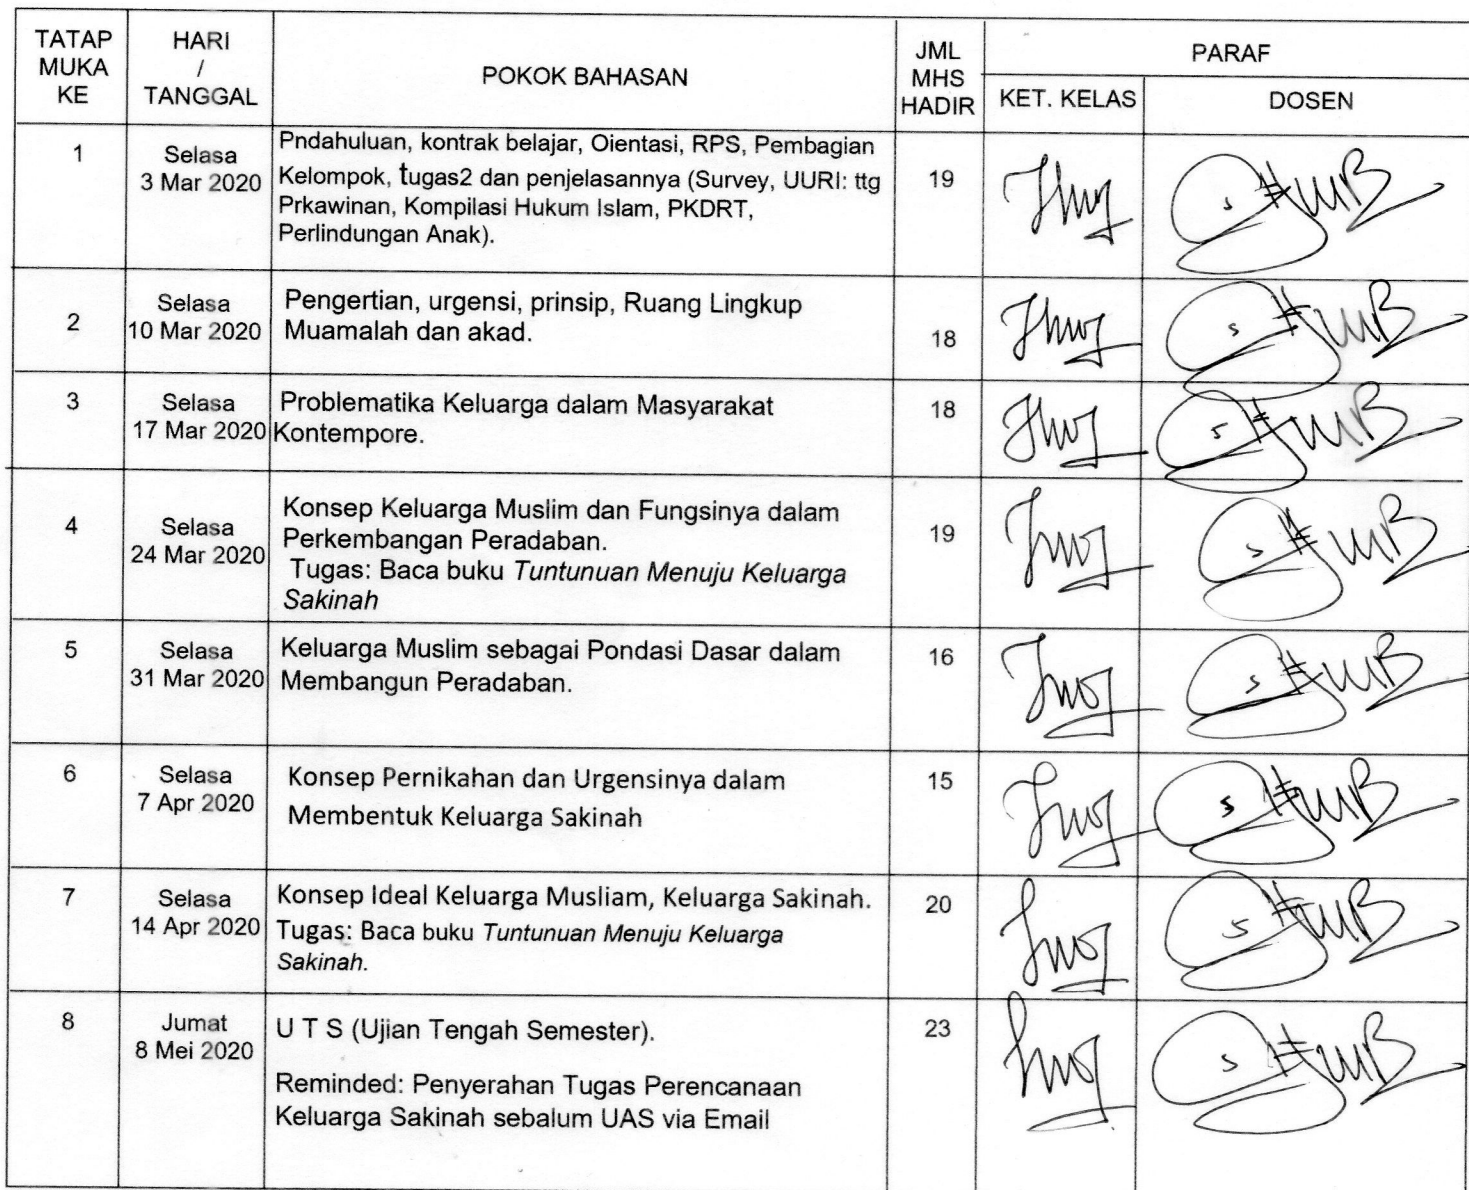 TATAP MUKA KE
HARI / TANGGAL
POKOK BAHASAN
JML MHS HADIR
PARAF
KET. KELAS
DOSEN
1
Selasa
3 Mar 2020
Pndahuluan, kontrak belajar, Oientasi, RPS, Pembagian
Kelompok, tugas2 dan penjelasannya (Survey, UURI: ttg
Prkawinan, Kompilasi Hukum Islam, PKDRT,
Perlindungan Anak).
19
2
Selasa
10 Mar 2020
Pengertian, urgensi, prinsip, Ruang Lingkup
Muamalah dan akad.
18
3
Selasa
17 Mar 2020
Problematika Keluarga dalam Masyarakat
Kontempore.
18
4
Selasa
24 Mar 2020
Konsep Keluarga Muslim dan Fungsinya dalam
Perkembangan Peradaban.
Tugas: Baca buku Tuntunuan Menuju Keluarga
Sakinah
19
5
Selasa
31 Mar 2020
Keluarga Muslim sebagai Pondasi Dasar dalam
Membangun Peradaban.
16
6
Selasa
7 Apr 2020
Konsep Pernikahan dan Urgensinya dalam
Membentuk Keluarga Sakinah
15
7
Selasa
14 Apr 2020
Konsep Ideal Keluarga Musliam, Keluarga Sakinah.
Tugas: Baca buku Tuntunuan Menuju Keluarga
Sakinah.
20
8
Jumat
8 Mei 2020
U T S (Ujian Tengah Semester).
Reminded: Penyerahan Tugas Perencanaan
Keluarga Sakinah sebalum UAS via Email
23